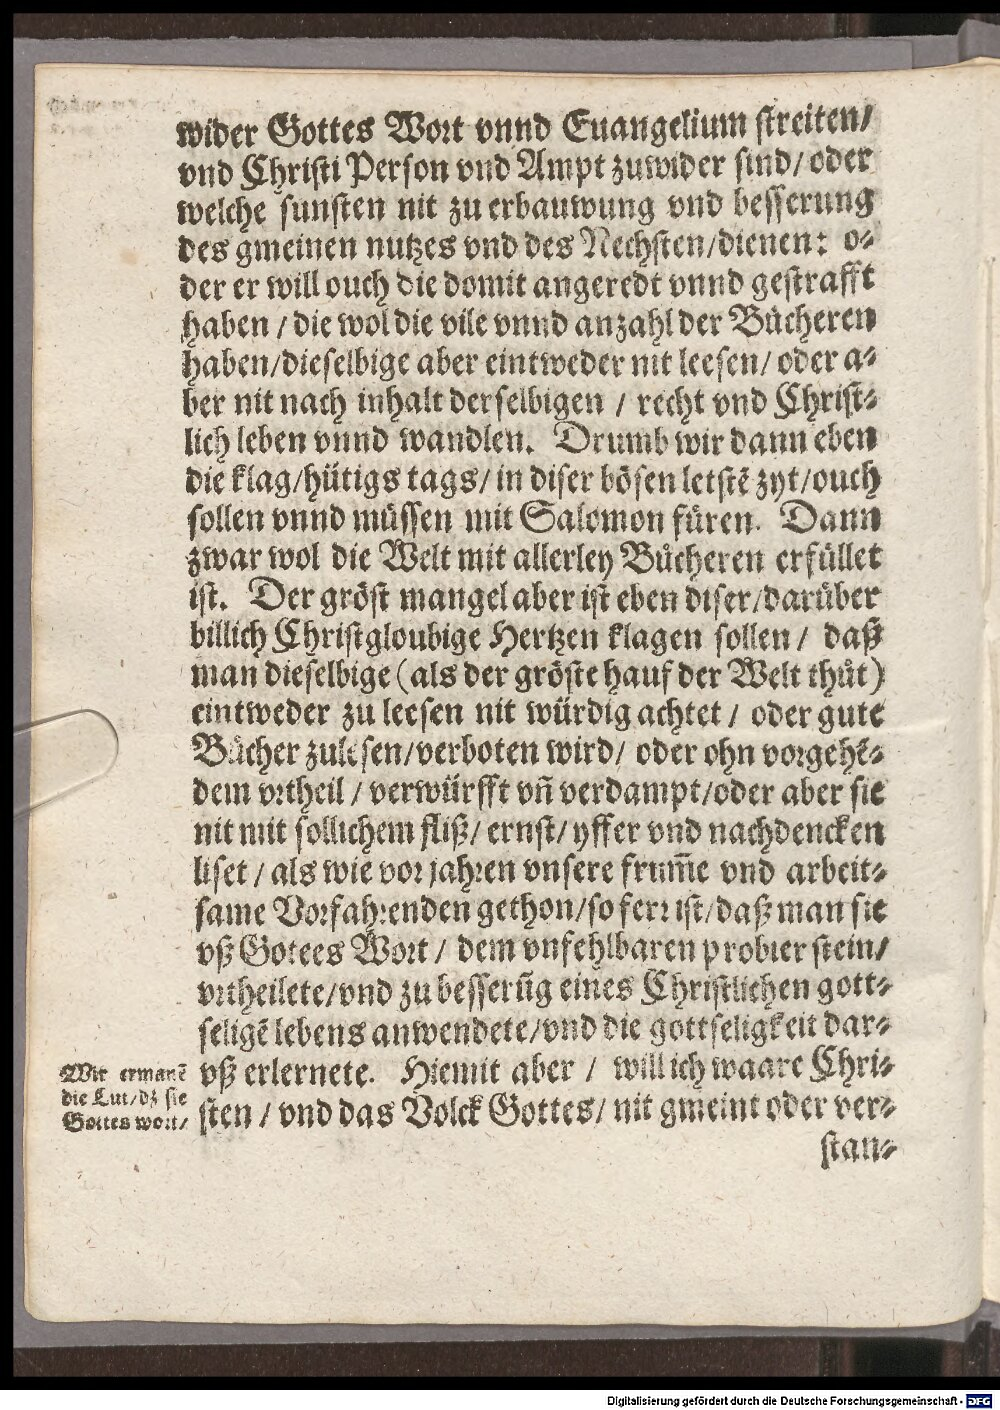 wider Gottes Wort vnnd Euangelium streiten/
vnd Christi Person vnd Ampt zuwider sind/ oder
welche sunsten nit zu erbauwung vnd besserung
des gmeinen nutzes vnd des Nechsten/dienen: o-
der er will ouch die domit angeredt vnnd gestrafft
haben / die wol die vile vnnd anzahl der Bücheren
haben/dieselbige aber eintweder nit leesen/ oder a-
ber nit nach inhalt derselbigen / recht vnd Christ-
lich leben vnnd wandlen. Drumb wir dann eben
die klag/hütigs tags/ in diser bösen letstē zyt/ouch
sollen vnnd müssen mit Salomon füren. Dann
zwar wol die Welt mit allerley Bücheren erfüllet
ist. Der gröst mangel aber ist eben diser/darüber
billich Christgloubige Hertzen klagen sollen / daß
man dieselbige (als der gröste hauf der Welt thůt)
eintweder zu leesen nit würdig achtet / oder gute
Bücher zulesen/verboten wird/ oder ohn vorgehē-
dem vrtheil / verwürfft vñ verdampt/oder aber sie
nit mit sollichem fliß/ ernst/ yffer vnd nachdencken
liset / als wie vor jahren vnsere frum̄e vnd arbeit-
same Vorfahrenden gethon/so ferr ist/daß man sie
vß Gotees Wort / dem vnfehlbaren probier stein/
vrtheilete/vnd zu besserūg eines Christlichen gott-
seligē lebens anwendete/vnd die gottseligkeit dar-
vß erlernete. Hiemit aber / will ich waare Chri-
sten / vnd das Volck Gottes/ nit gmeint oder ver-
stan-
Wir ermanē
die Lut/dz sie
Gottes wort/
Digitalisierung gefördert durch die Deutsche Forschungsgemeinschaft - DFG